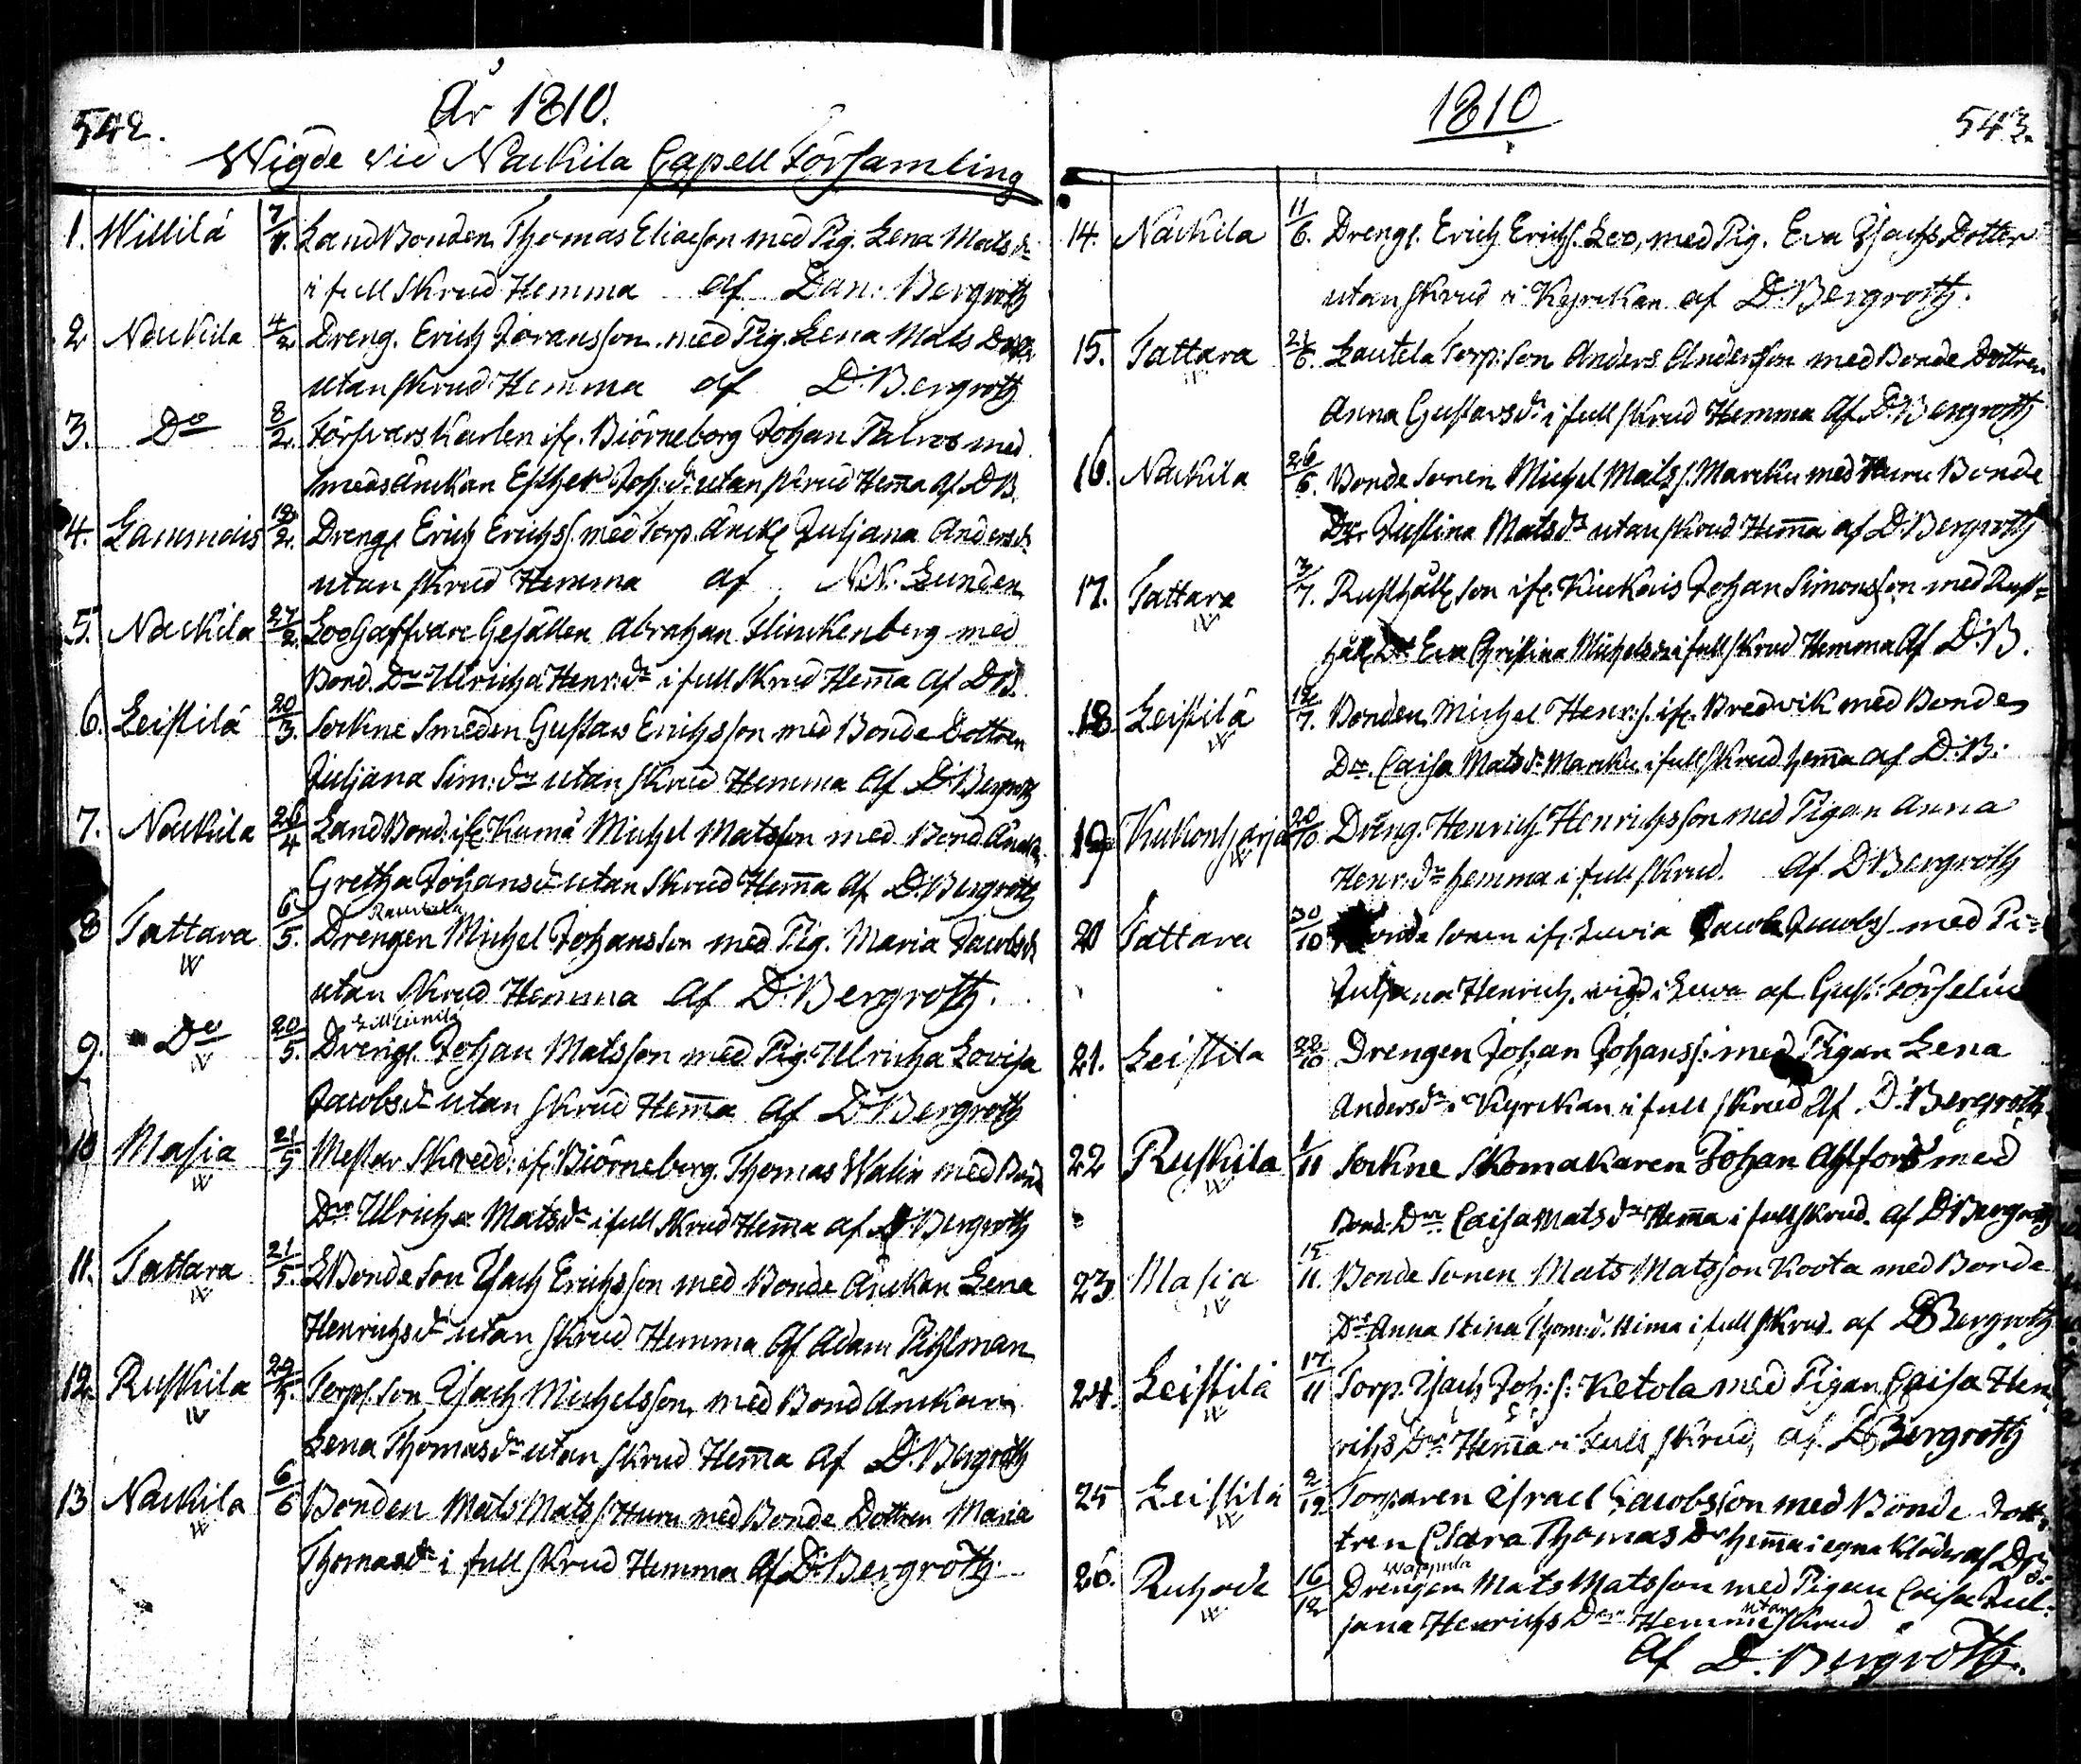 542.
År 1810.
Wigde vid Nackila Capell Församling
1. Willilä 7/1. LandBonden Thomas Eliasson med Pig. Lena Mats dr
i full skrud Hemma af Dan: Bergroth
2 Nackila 4/2 Dreng. Erich Jöransson med Pig. Lena Mats Dott
utan skrud Hemma af D: Bergroth
3. Do 8/2. Försvars Karlen ifr. Biörneborg Johan med
Smeds Änckan Esther Joh: dr utan skrud Hem̅a af DB.
4. Gammois 18/2. Drengn Erich Erichss. med Torp. Änck. Juljana Anders dr
utan skrud Hemma af NN. Lunden
5. Nackila 27/2. Gesällen Abraham Flinckenberg med
Bond. Dr Ulricha Henr: dr i full skrud Hem̅a af DB.
6. Leistilä 20/3. Sockne Smeden Gustaw Erichsson med Bonde Dottren
Juljana Sim: dr utan skrud Hemma af D: Bergroth
7. Nackila 26/4 LandBond. ifr. Kumå Michel Matsson med Bond Änckan
Gretha Johans dr utan skrud Hem̅a af D: Bergroth
8 Tattara 6/5. Drengen Michel Johansson med Pig. Maria Jacobs dr
W
utan skrud Hemma af D: Bergroth.
9. Do 20/5. Drengn Johan Matsson med Pig. Ulricha Lovisa
W
Jacobs dr utan skrud Hem̅a af D: Bergroth
10 Masia 21/5 Mestar Skredd: ifr. Biörneborg. Thomas Walin med Bond
W
Dr Ulricha Mats dr i full skrud Hem̅a af D: Bergroth
11. Tattara 21/5. Bonde Son Isach Erichsson med Bonde Änckan Lena
W
Henrichs dr utan skrud Hemma af Adam Pihlman
12. Ruskila 29/5. Torp. Son Isach Michelsson med Bond Änckan
W
Lena Thomas dr utan skrud Hem̅a af D: Bergroth
13 Nackila 6/6 Bonden Mats Matss. Huru med Bonde Dottren Maria
W
Thomas dr i full skrud Hemma af D: Bergroth
1810
543.
14. Nackila 11/6. Drengn Erich Erichss. Leo, med Pig. Eva Isachs Dotter
utan skrud i Kyrckan af D: Bergroth.
15. Tattara 21/6. Lautela Torp: Son Anders Andersson med Bonde Dottren
Anna Gustavs dr i full skrud Hemma af D: Bergroth
16. Nackila 26/6. Bonde Sonen Michel Matss. Marcku med Huru Bonde
Dr Justina Mats dr utan skrud Hem̅a af D: Bergroth
17. Tattara 3/7. Rusthåll. Son ifr. Johan Simonsson med Rust=
W
håll. Dr Eva Christina Michels dr i full skrud Hemma af D: B.
18 Leistilä 12/7. Bonden Michel Henr: s. ifr. Bredvik med Bonde
W
Dr Caisa Mats dr Marcku i full skrud hem̅a af D: B:
19 Kukonharja 20/10. Dreng. Henrich Henrichsson med Pigan Anna
W
Henr: dr hemma i full skrud. af D: Bergroth
20 Tattara 30/10 Bonde Sonen ifr. Luvia Jacob Jacobss. med Pi=
Juljana Henrich. vigd i Luvia af Gust:
21. Leistila 22/10 Drengen Johan Johanss: med Pigan Lena
Anders dr i Kyrckan i full skrud af D: Bergroth
22 Ruskila 1/11 Sockne Skomakaren Johan Ahlfors med
W
Bond: Dr Caisa Mats dr Hem̅a i full skrud. af D: Bergroth
23 Masia 15/11. Bonde Sonen Mats Matsson Koota med Bonde
W
Dr Anna Stina Thom: d. Nima i full skrud. af D: Bergroth
24. Leistilä 17/11 Torp. Isach Joh: s: Ketola med Pigan Caisa Hen
W
richs Dr Hem̅a i full skrud, af D: Bergroth
25 Leistilä 2/12. Torparen Israel Jacobsson med Bonde Dott=
W
tren Clara Thomas Dr hem̅a i egna kläder af DB.
26. Ruhade 16/12 Wappula Drengen Mats Matsson med Pigan Caisa Jul=
W
jana Henrichs Dr Hemma utan skrud
af D: Bergroth.